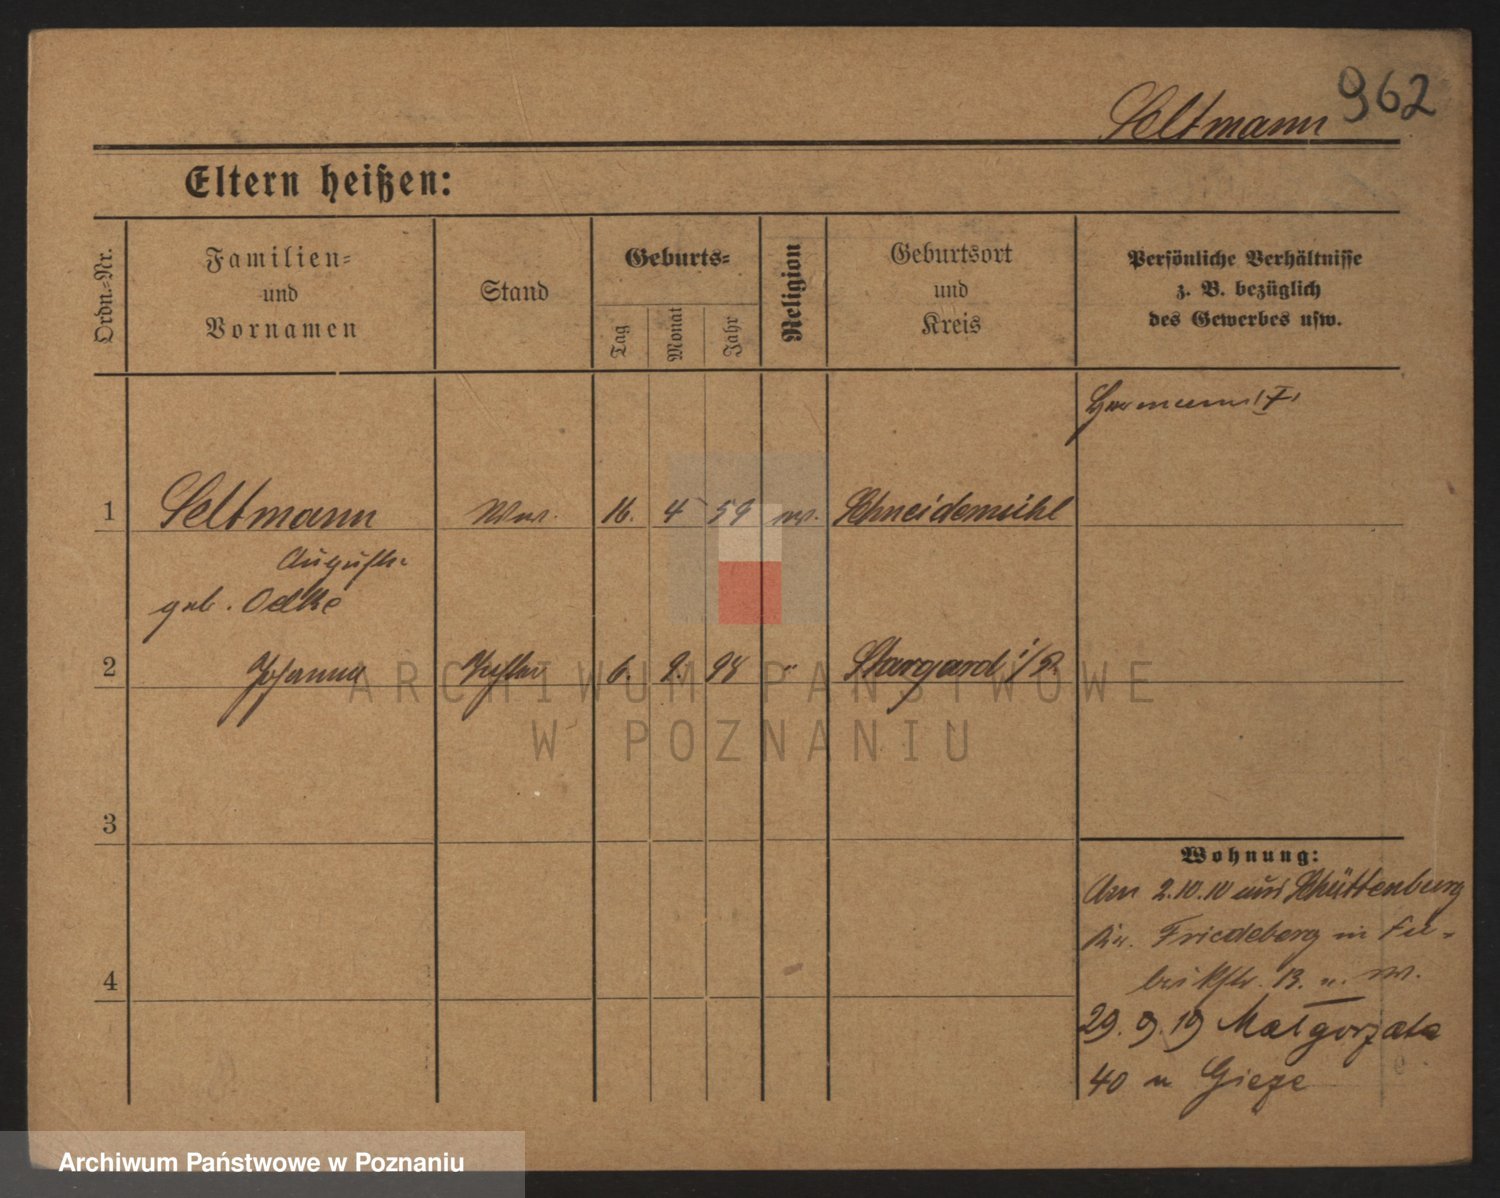 962
Seltmann
Eltern heißen:
Ordn.-Nr.
Familien-
und
Vornamen
Stand
Geburts-
Tag
Monat
Jahr
Religion
Geburtsort
und
Kreis
Persönliche Verhältnisse
z. B. bezüglich
des Gewerbes usw.
Hermann
1 Seltmann Ww. 16. 4 59 ev. Schneidemühl
Auguste
geb. Oelke
2 Johanna Tochter 6. 9. 98 " Stargard i/P.
3
4
Wohnung:
Am 2.10.10 aus Schüttenburg
Kr. Friedeberg in
13. u. W.
29. 9. 19 Małgorzata
40 u Giese
ARCHIWUM PAŃSTWOWE
W POZNANIU
Archiwum Państwowe w Poznaniu